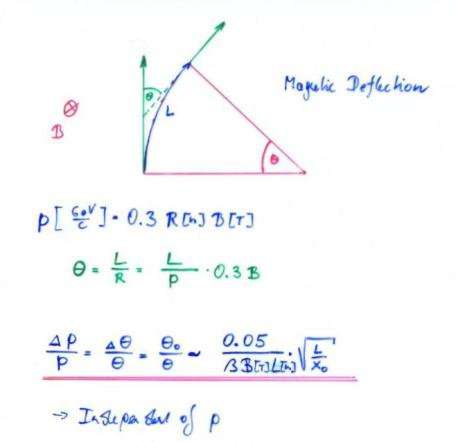 Magnetic Deflection
⊗
B
θ
L
θ
p[GeV/c] = 0.3 R[m] B[T]
θ = L/R = L/p · 0.3 B
Δp/p = Δθ/θ = θ₀/θ ~ 0.05/(β B[T] L[m]) · √(L/X₀)
→ Independent of p